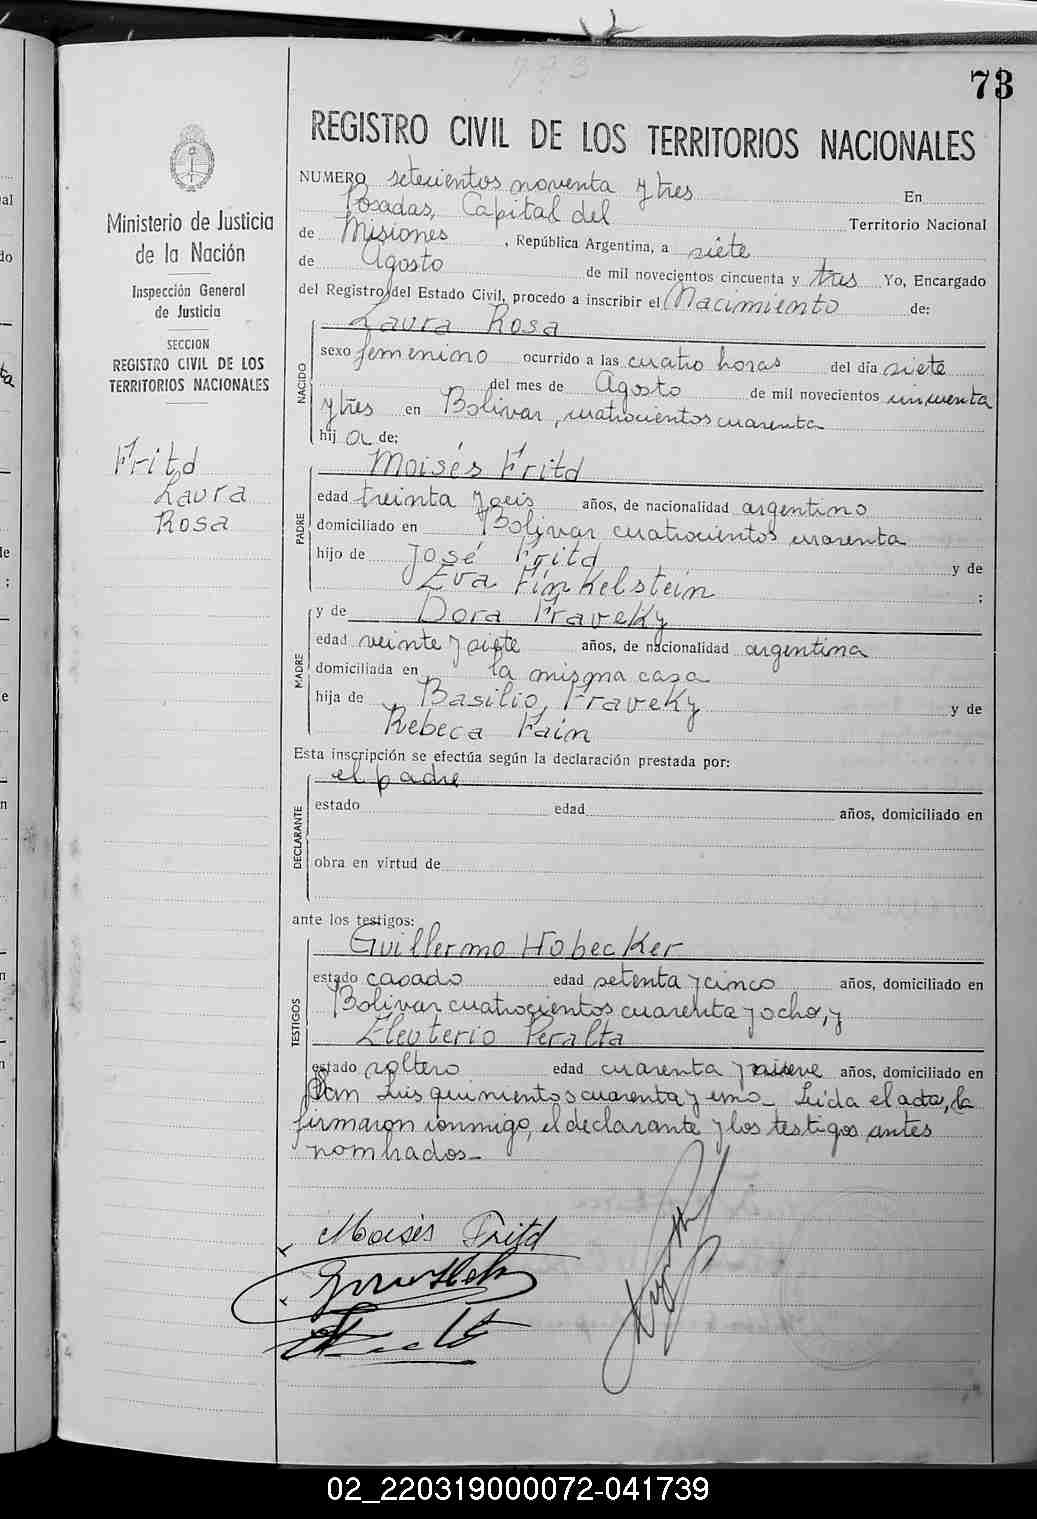 793
73
REGISTRO CIVIL DE LOS TERRITORIOS NACIONALES
Ministerio de Justicia
de la Nación
Inspección General
de Justicia
SECCION
REGISTRO CIVIL DE LOS
TERRITORIOS NACIONALES
Fritd
Laura
Rosa
NUMERO setecientos noventa y tres En
Posadas, Capital del Territorio Nacional
de Misiones, República Argentina, a siete
de Agosto de mil novecientos cincuenta y tres Yo, Encargado
del Registro del Estado Civil, procedo a inscribir el Nacimiento de:
NACIDO
Laura Rosa
sexo femenino ocurrido a las cuatro horas del día siete
del mes de Agosto de mil novecientos cincuenta
y tres en Bolivar, cuatrocientos cuarenta
hij a de:
PADRE
Moisés Fritd
edad treinta y seis años, de nacionalidad argentino
domiciliado en Bolivar cuatrocientos cuarenta
hijo de José Fritd y de
Eva Finkelstein ;
MADRE
y de Dora Praveky
edad veinte y siete años, de nacionalidad argentina
domiciliada en la misma casa
hija de Basilio Fraveky y de
Rebeca Fain
Esta inscripción se efectúa según la declaración prestada por:
DECLARANTE
el padre
estado edad años, domiciliado en
obra en virtud de
ante los testigos:
TESTIGOS
Guillermo Hobecker
estado casado edad setenta y cinco años, domiciliado en
Bolivar cuatrocientos cuarenta y ocho, y
Eleuterio Peralta
estado soltero edad cuarenta y nueve años, domiciliado en
San Luis quinientos cuarenta y uno_ Leída el acta, la
firmaron conmigo, el declarante y los testigos antes
nombrados_
Moisés Fritd
02_220319000072-041739